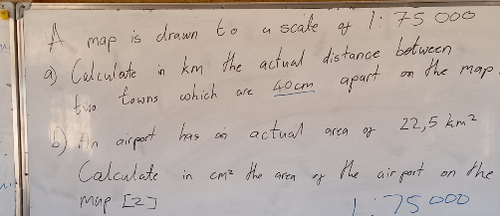 A map is drawn to a scale of 1: 75 000
a) Calculate in km the actual distance between
two towns which are 40cm apart on the map
b) An airport has an actual area of 22,5 km²
Calculate in cm² the area of the airport on the
map [2]
1:75000